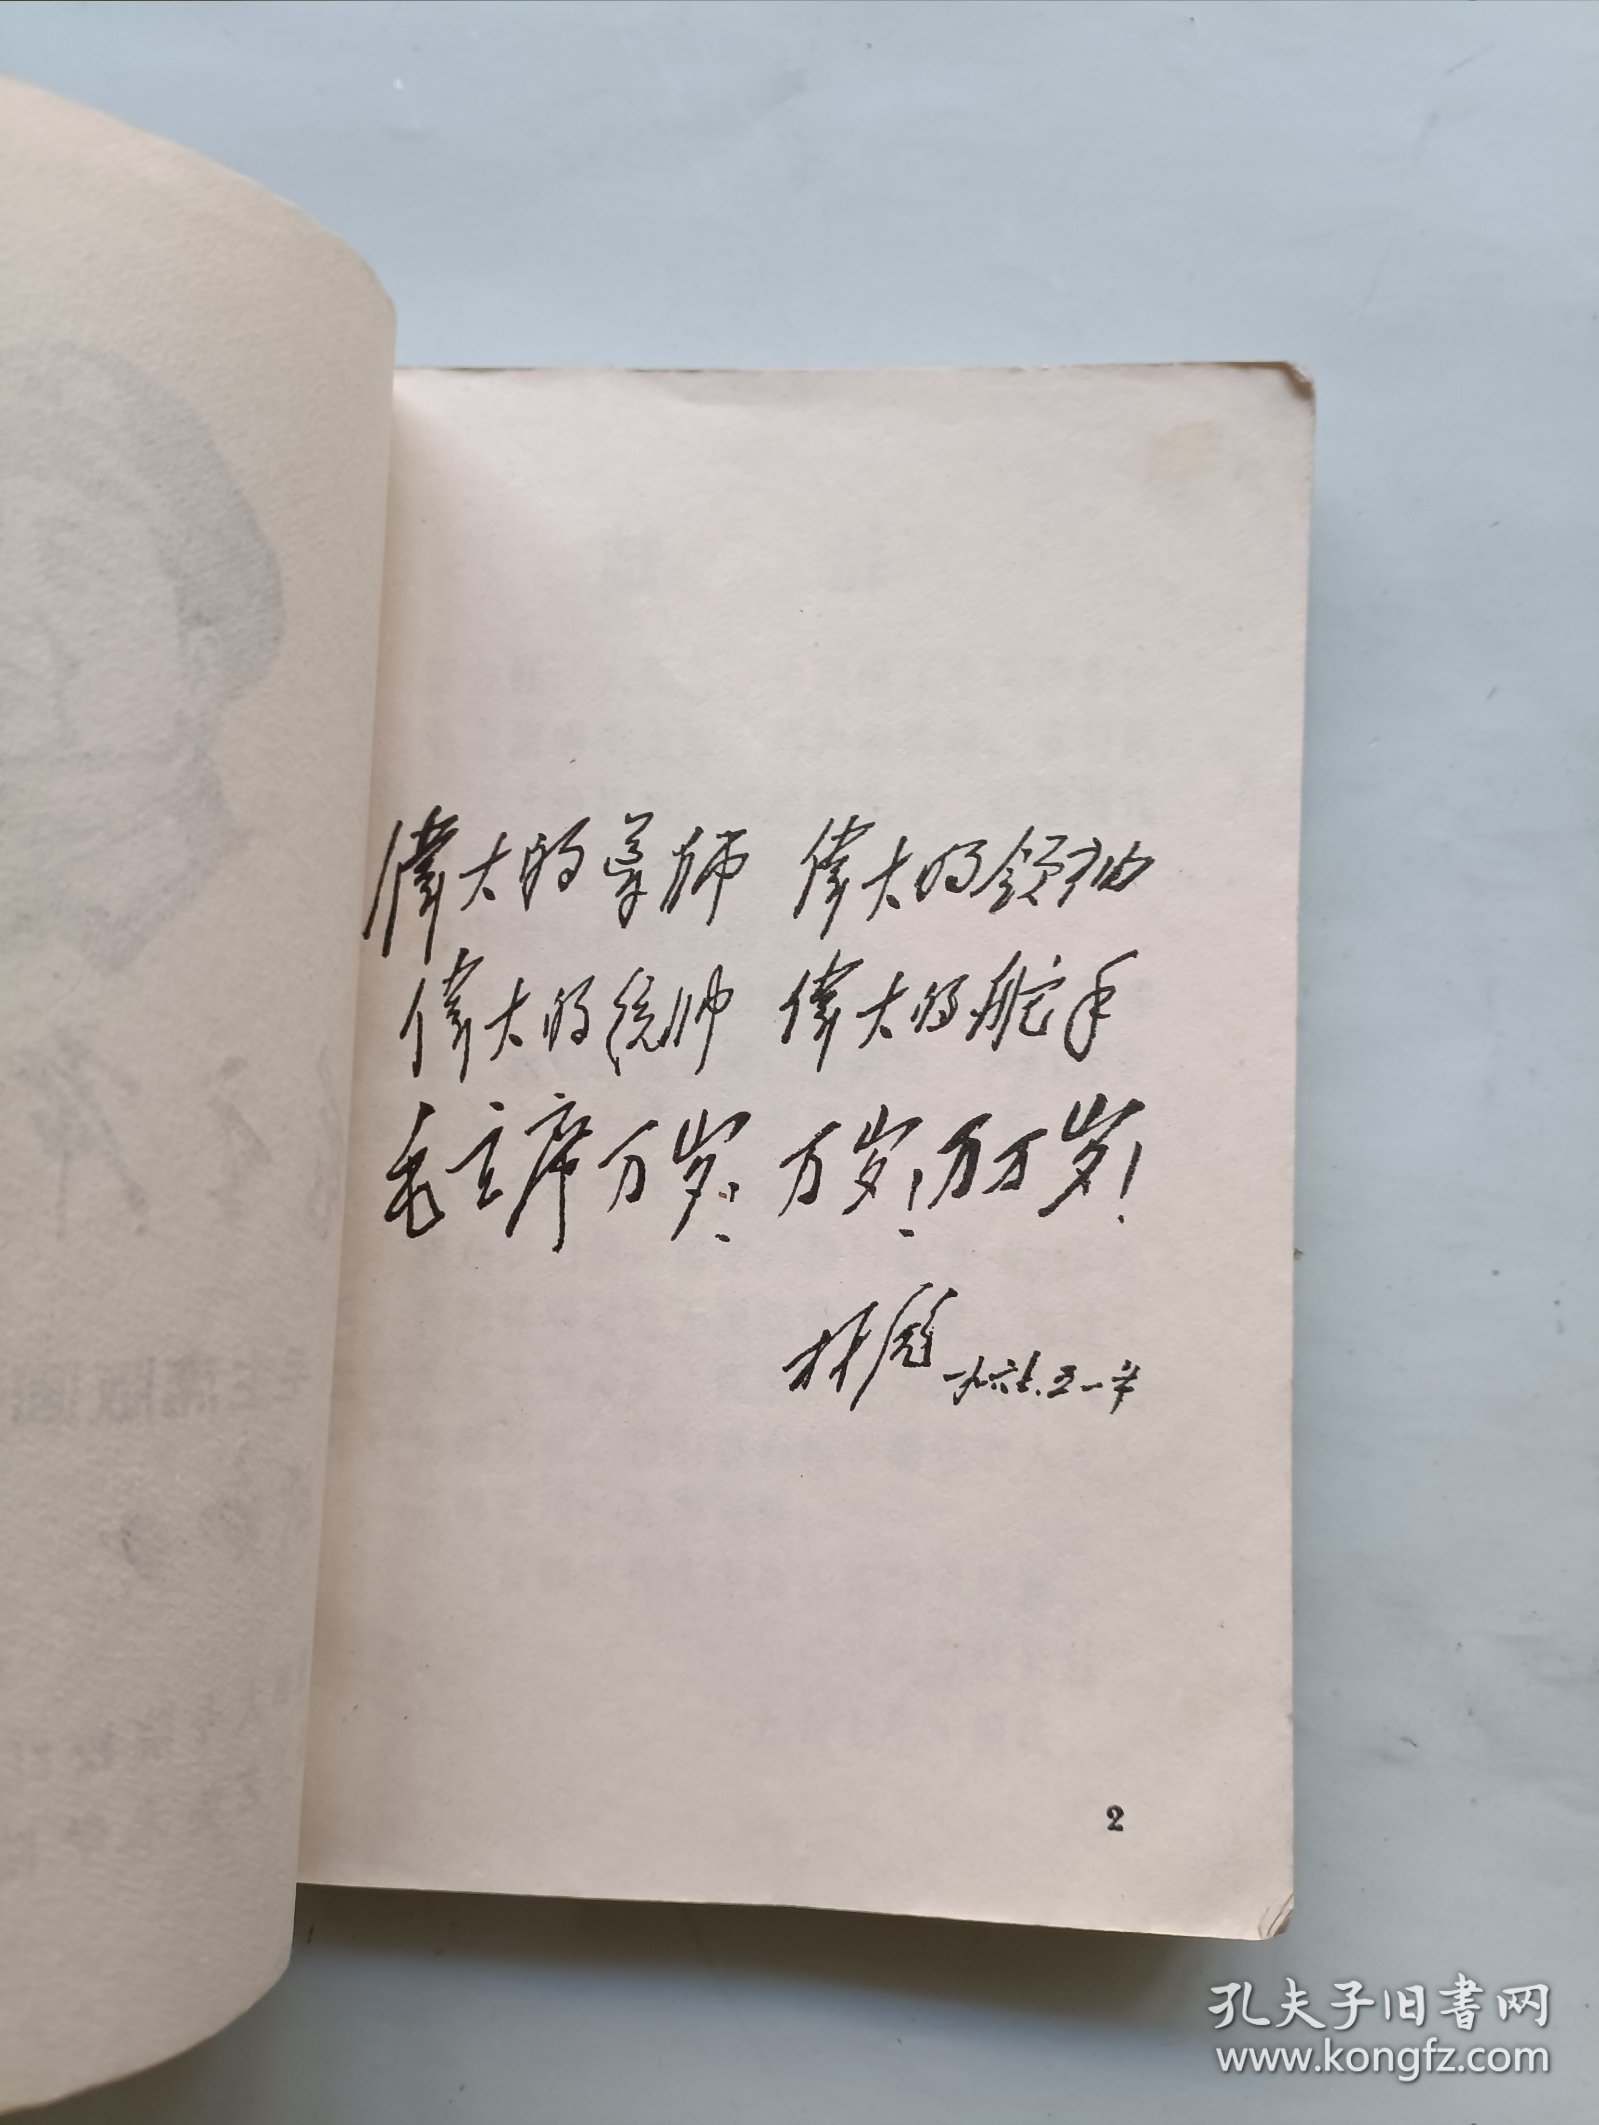 偉大的导师 偉大的領袖
偉大的统帅 偉大的舵手
毛主席万岁！万岁！万万岁！
林彪 一九六七.五一节
2
孔夫子旧书网
www.kongfz.com